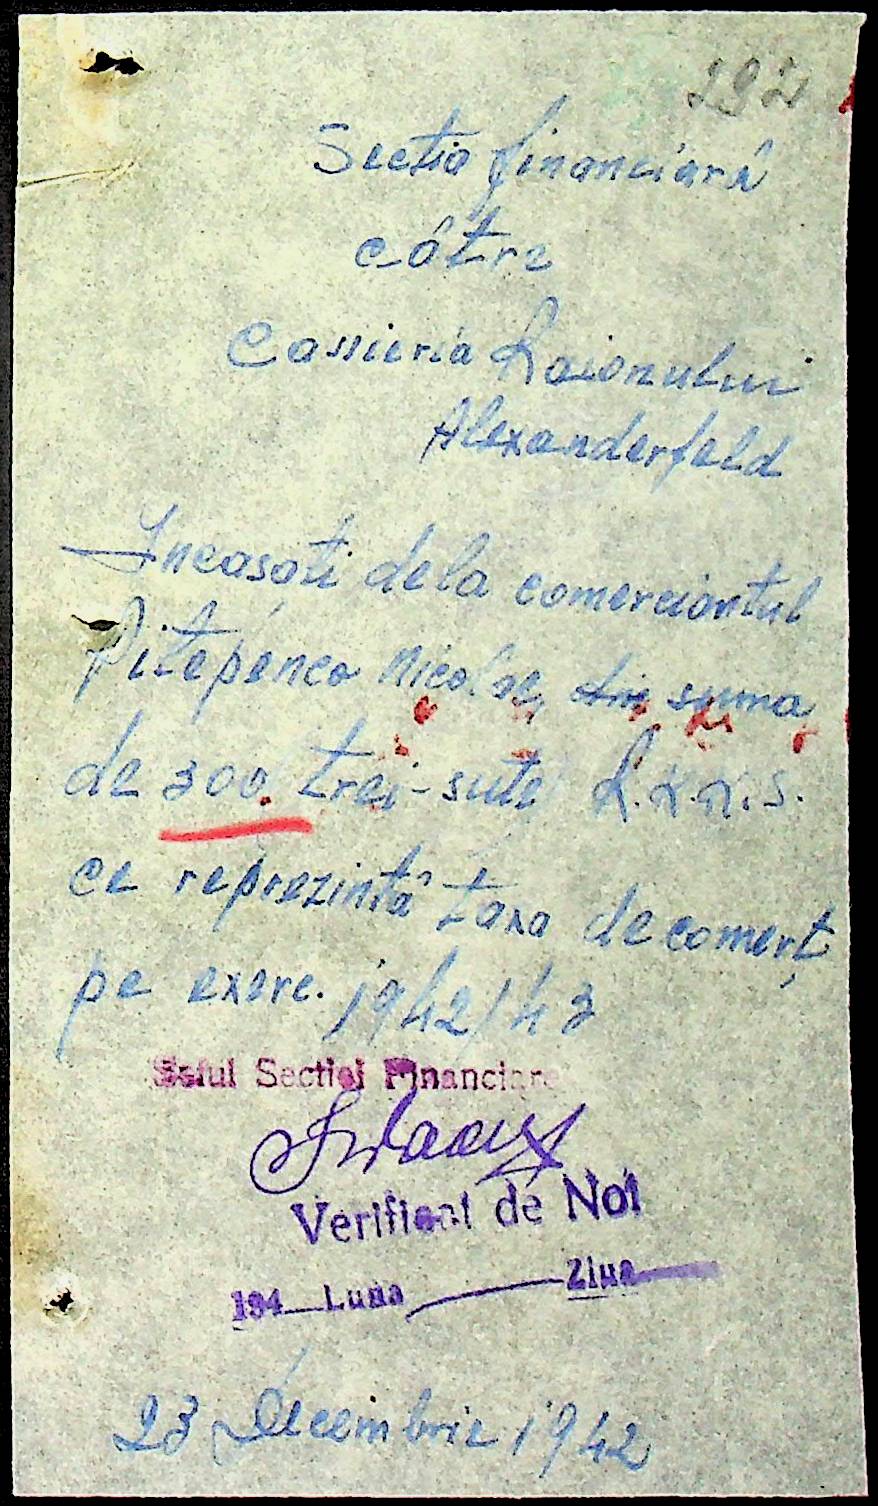 292
Sectia financiară
cótre
Cassieria Raionului
Alexanderfeld
Incasati dela comerciantul
Pitepenco Nicolae, din suma
de 300 trei-sute R.K.K.S.
ce reprezintă taxa de comerț
pe exerc. 1942/43
Seful Sectiei Financiare
Verificat de Noi
194 Luna Ziua
23 Decembrie 1942